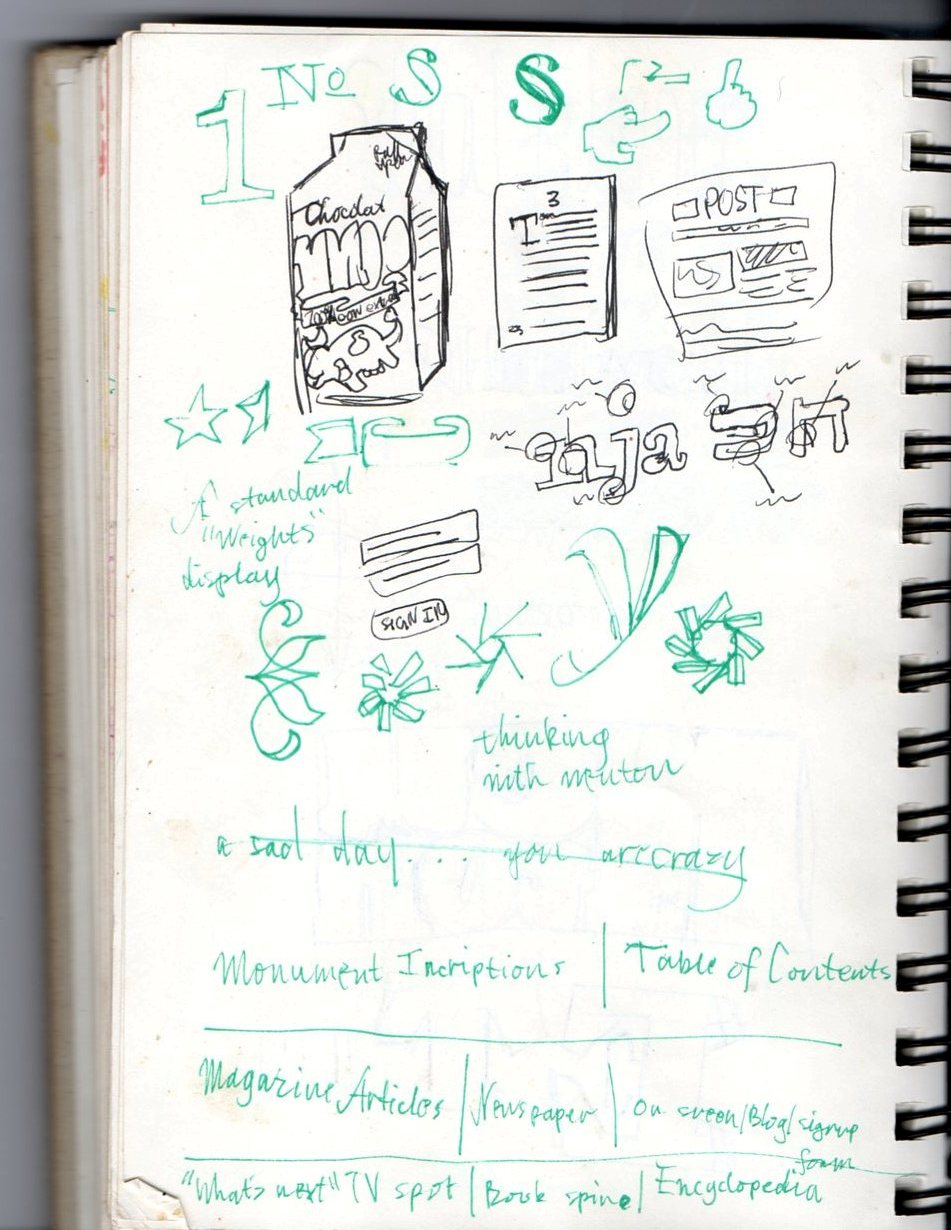 1 No S S
Chocolat
3
POST
nja
A standard
"Weights"
display
SIGN IN
thinking
a sad day... you are crazy
Monument Incriptions | Table of Contents
Magazine Articles | Newspaper | On screen/Blog/signup
form
"What's next" TV spot | Book spine | Encyclopedia